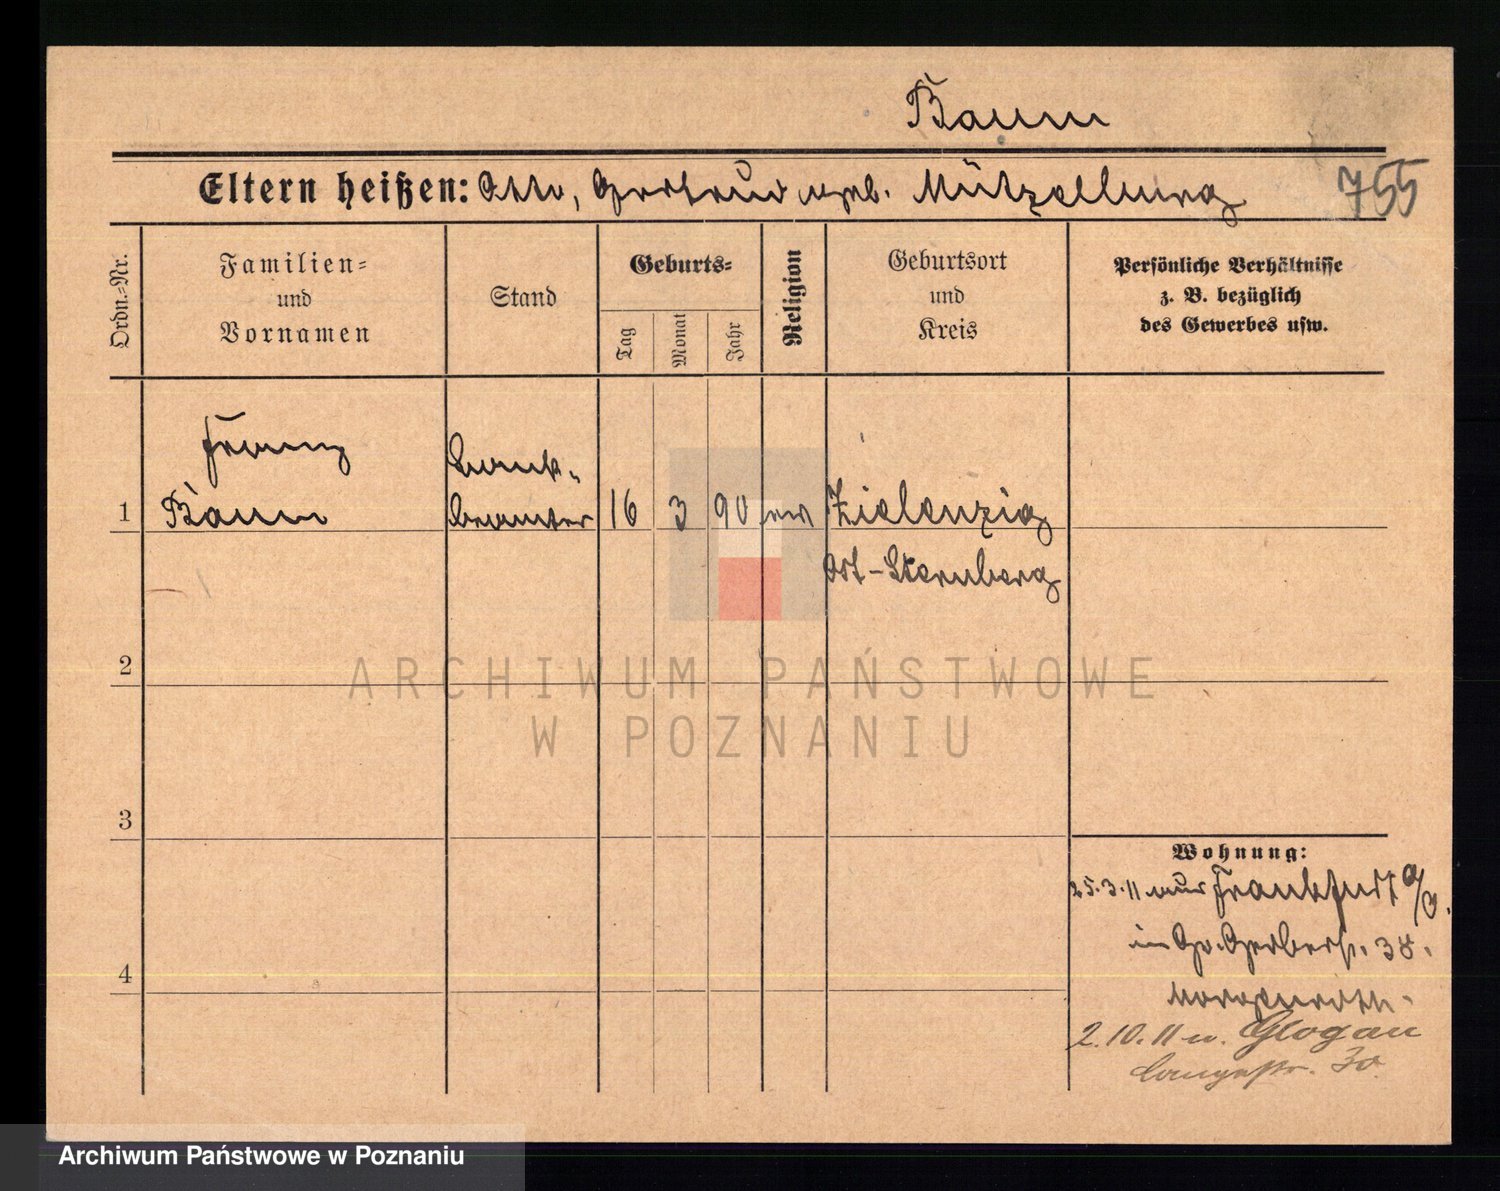 Baum
Eltern heißen: Otto, Gertrud geb. Mützelburg 755
Ordn.=Nr.
Familien=
und
Vornamen
Stand
Geburts=
Tag
Monat
Jahr
Religion
Geburtsort
und
Kreis
Persönliche Verhältnisse
z. B. bezüglich
des Gewerbes usw.
Franz
Baum
Bank-
beamter
1
16 3 90 ev
Zielenzig
Ost-Sternberg
2
3
4
Wohnung:
25.3.11 aus Frankfurt a/O.
in Gr. Gerberstr. 38.
Morgenroth.
2.10.11 n. Glogau
Langestr. 30
ARCHIWUM PAŃSTWOWE
W POZNANIU
Archiwum Państwowe w Poznaniu